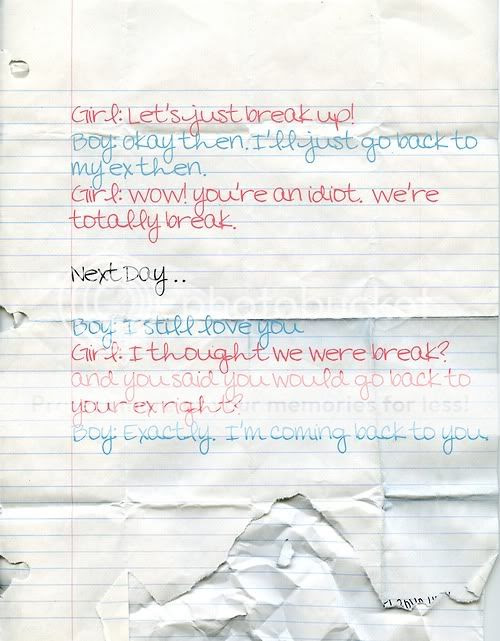 Girl: Let's just break up!
Boy: okay then. I'll just go back to
my ex then.
Girl: wow! you're an idiot. we're
totally break.
Next Day ..
Boy: I still love you
Girl: I thought we were break?
and you said you would go back to
your ex right?
Boy: Exactly. I'm coming back to you.
photobucket